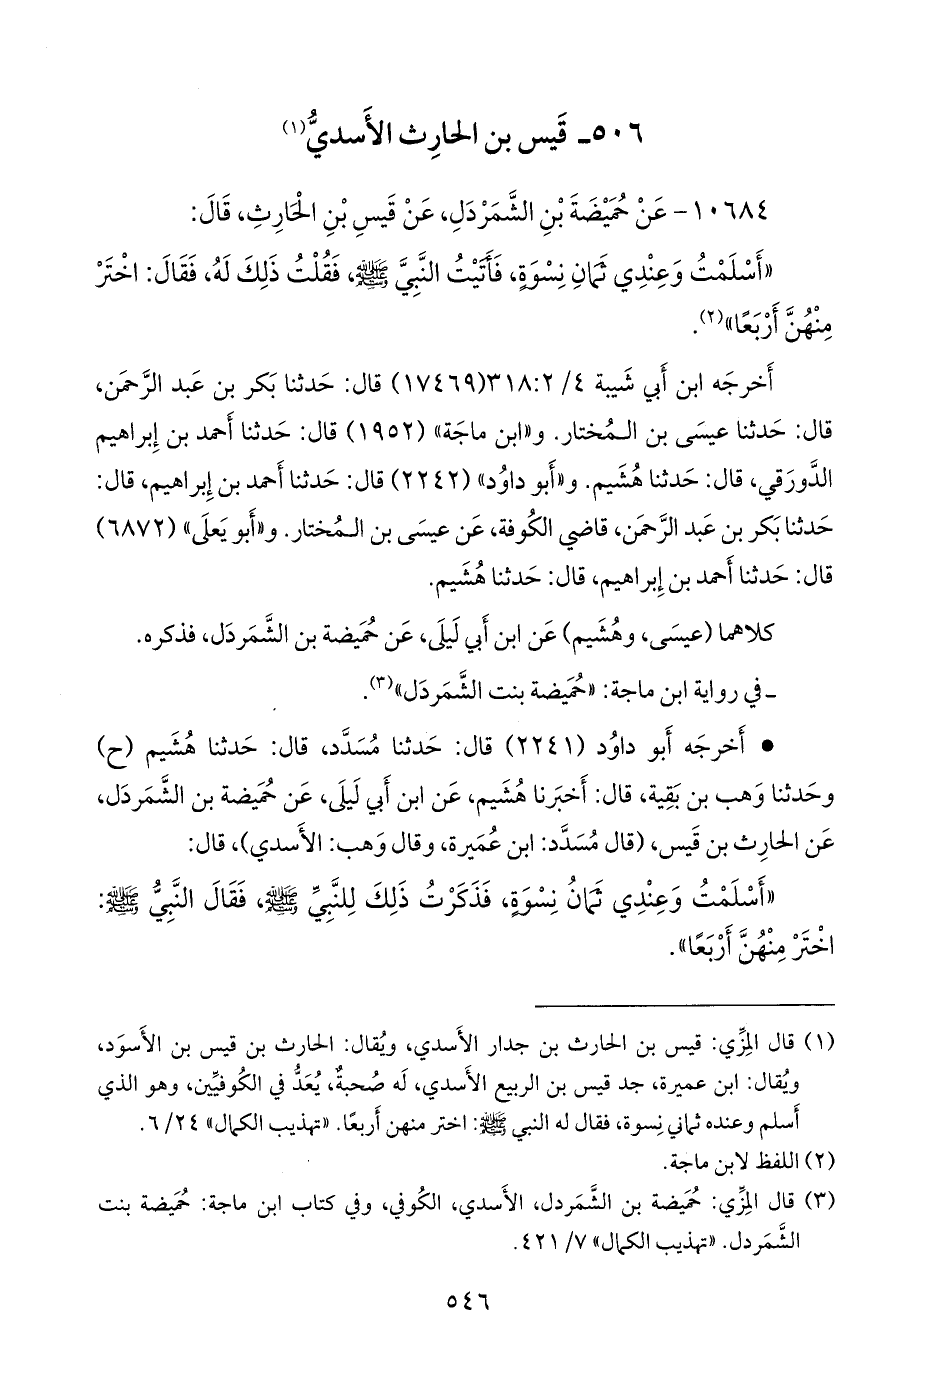 ٥٠٦ـ قَيس بن الحارِث الأَسديُّ(١)
١٠٦٨٤ - عَنْ حُمَيْضَةَ بْنِ الشَّمَرْدَلِ، عَنْ قَيْسِ بْنِ الْحَارِثِ، قَالَ:
«أَسْلَمْتُ وَعِنْدِي ثَمَانِ نِسْوَةٍ، فَأَتَيْتُ النَّبِيَّ ﷺ، فَقُلْتُ ذَلِكَ لَهُ، فَقَالَ: اخْتَرْ
مِنْهُنَّ أَرْبَعًا»(٢).
أَخرجَه ابن أَبي شَيبة ٤/ ٣١٨:٢(١٧٤٦٩) قال: حَدثنا بَكر بن عَبد الرَّحمَن،
قال: حَدثنا عيسَى بن الـمُختار. و«ابن ماجَة» (١٩٥٢) قال: حَدثنا أَحمد بن إِبراهيم
الدَّورَقي، قال: حَدثنا هُشَيم. و«أَبو داوُد» (٢٢٤٢) قال: حَدثنا أَحمد بن إِبراهيم، قال:
حَدثنا بَكر بن عَبد الرَّحمَن، قاضي الكُوفة، عَن عيسَى بن الـمُختار. و«أَبو يَعلَى» (٦٨٧٢)
قال: حَدثنا أَحمد بن إِبراهيم، قال: حَدثنا هُشَيم.
كلاهما (عيسَى، وهُشَيم) عَن ابن أَبي لَيلَى، عَن حُمَيضة بن الشَّمَردَل، فذكره.
ـ في رواية ابن ماجة: «حُمَيضة بنت الشَّمَردَل»(٣).
• أَخرجَه أَبو داوُد (٢٢٤١) قال: حَدثنا مُسَدَّد، قال: حَدثنا هُشَيم (ح)
وحَدثنا وَهب بن بَقِية، قال: أَخبَرنا هُشَيم، عَن ابن أَبي لَيلَى، عَن حُمَيضة بن الشَّمَردَل،
عَن الحارِث بن قَيس، (قال مُسَدَّد: ابن عُمَيرة، وقال وَهب: الأَسدي)، قال:
«أَسْلَمْتُ وَعِنْدِي ثَمَانُ نِسْوَةٍ، فَذَكَرْتُ ذَلِكَ لِلنَّبِيِّ ﷺ، فَقَالَ النَّبِيُّ ﷺ:
اخْتَرْ مِنْهُنَّ أَرْبَعًا».
(١) قال المِزِّي: قيس بن الحارث بن جدار الأَسدي، ويُقال: الحارث بن قيس بن الأَسوَد،
ويُقال: ابن عميرة، جد قيس بن الربيع الأَسدي، لَه صُحبةٌ، يُعَدُّ في الكُوفيِّين، وهو الذي
أَسلم وعنده ثماني نِسوة، فقال له النبي ﷺ: اختر منهن أَربعًا. «تهذيب الكمال» ٢٤/ ٦.
(٢) اللفظ لابن ماجة.
(٣) قال المِزِّي: حُمَيضة بن الشَّمَردل، الأَسدي، الكُوفي، وفي كتاب ابن ماجة: حُمَيضة بنت
الشَّمَردل. «تهذيب الكمال» ٧/ ٤٢١.
٥٤٦